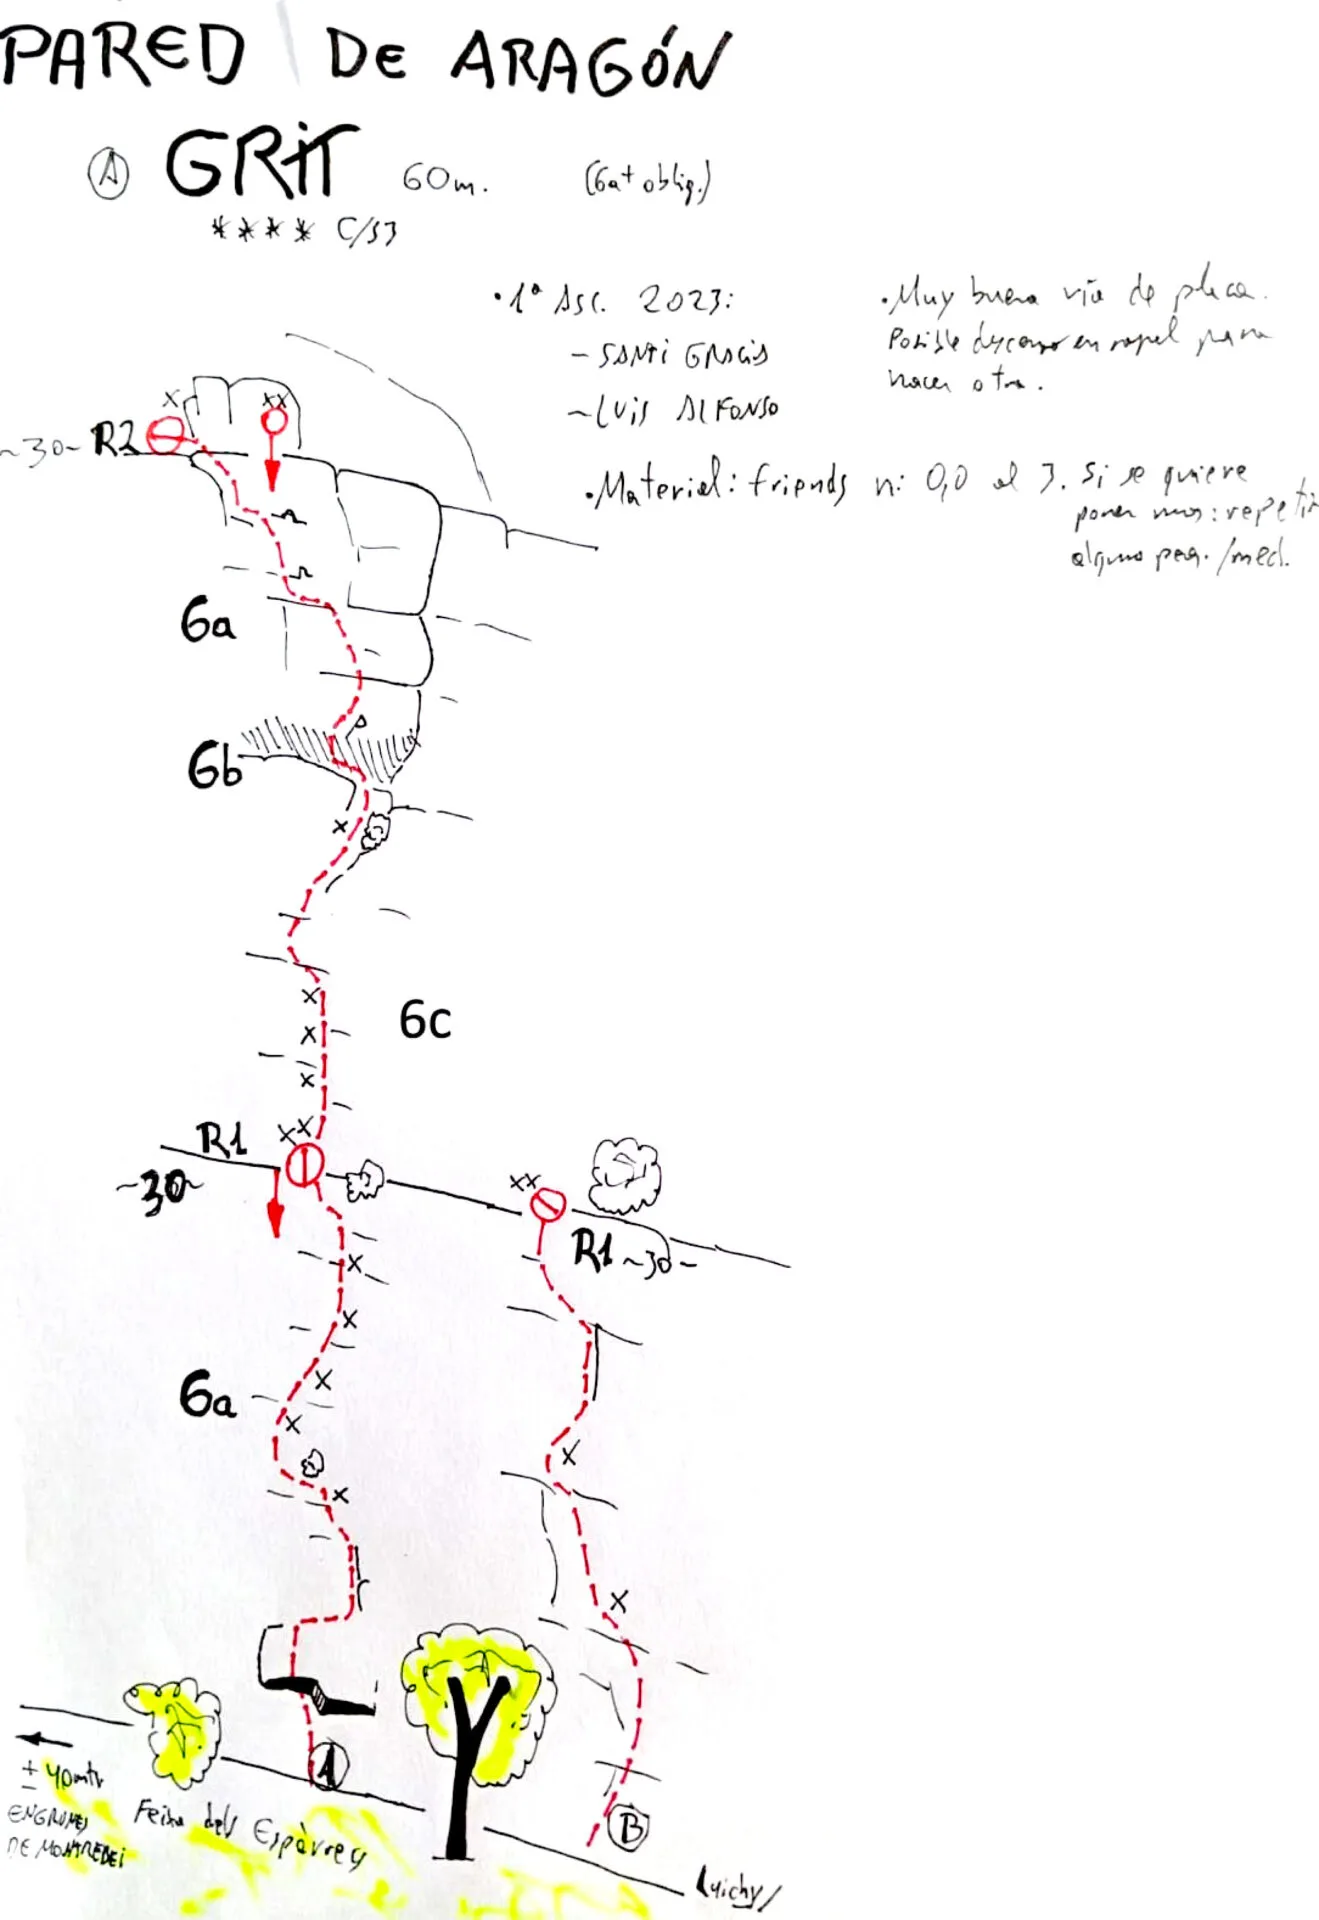 PARED DE ARAGÓN
Ⓐ GRIT 60m. (6a+ oblig.)
**** C/S3
• 1ª Asc. 2023:
- SANTI GRACIA
- LUIS ALFONSO
• Muy buena vía de placa.
Posible descenso en rapel para
hacer otra.
• Material: friends n: 0,0 al 3. Si se quiere
poner mas: repetir
alguno peq./med.
x xx
~30~ R2
6a
6b
x
x
6c
x
x
R1 xx
~30~
xx
R1 ~30~
x
x
x
6a
x
x
x
x
A
B
± 40mtr
ENGRUNES
DE MONTREBEI
Feixa dels Espàrrecs